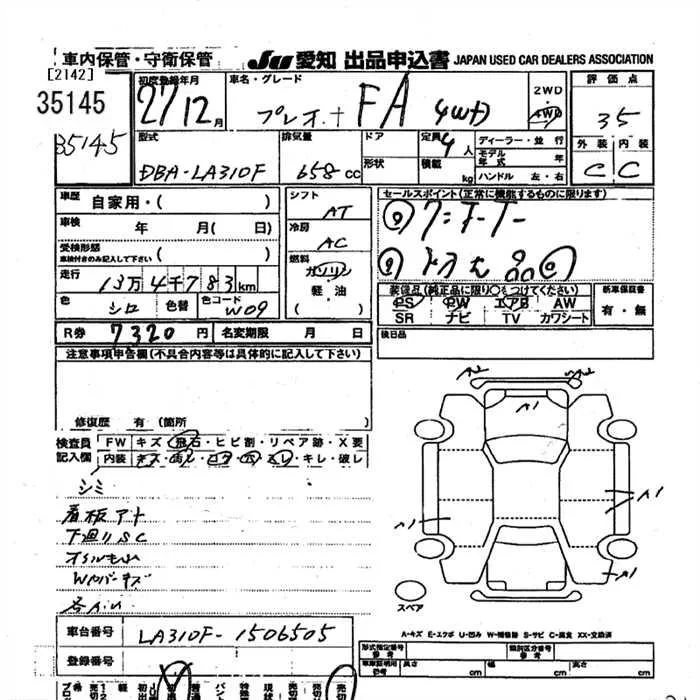 車内保管・守衛保管
JU 愛知 出品申込書 JAPAN USED CAR DEALERS ASSOCIATION
[2142]
35145
35145
初度登録年月
27 12月
車名・グレード
プレオ+ FA 4WD
2WD
4WD
評価点
3.5
外装 内装
C C
型式
DBA-LA310F
排気量
658 cc
ドア
形状
定員 4人
積載 kg
ディーラー・並行
モデル年式 年
ハンドル 左・右
車歴 自家用・( )
車検 年 月( 日)
受検形態
車検付きのみ記入して下さい ( )
走行 13万4千783km
色 シロ 色替 色コード W09
シフト AT
冷房 AC
燃料 ガソリン
軽・油
( )
セールスポイント(正常に機能するものに限ります)
装備品(純正品に限り○をつけてください)
PS PW エアB AW
SR ナビ TV カワシート
新車保証書
有・無
R券 7320円 名変期限 月 日
検日品
注意事項申告欄(不具合内容等は具体的に記入して下さい)
修復歴 有(箇所
検査員記入欄
FW キズ・飛石・ヒビ割・リペア跡・X要
内装 キズ・汚レ・コゲ・穴・スレ・キレ・破レ
シミ
看板アト
下廻りSC
A2 A2
A1
A1
A1
A1
スペア
A-キズ E-エクボ U-凹み W-補修跡 S-サビ C-腐食 XX-交換済
車台番号 LA310F-1506505
登録番号
形式指定番号 参考
類別区分番号 参考
車庫証明用 参考 長さ cm 幅 cm 高さ cm